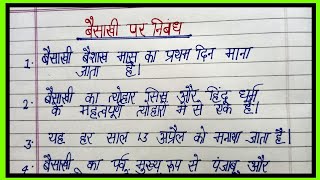 बैसाखी पर निबंध
1. बैसाखी बैशाख मास का प्रथम दिन माना
जाता है।
2. बैसाखी का त्योहार सिख और हिंदू धर्म
के महत्वपूर्ण त्योहारों में से एक है।
3. यह हर साल 13 अप्रैल को मनाया जाता है।
4. बैसाखी का पर्व मुख्य रूप से पंजाब और